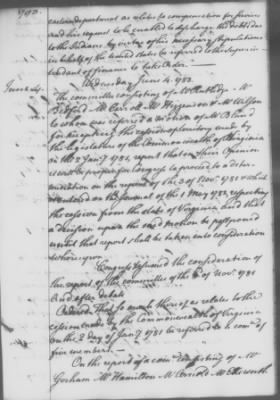 1783.
said department as relates to compensation for services
and his request to be enabled to discharge the debts due
to the Indians by virtue of his necessary stipulations
in behalf of the United States be referred to the Superin
tendant of finance to take Order.
June 4.
Wednesday June 4. 1783.
The committee consisting of Mr Rutledge Mr
Bedford Mr Carroll Mr Higginson & Mr Wilson
to whom was referred a motion of Mr Bland
for the acceptance of the cession of territory made by
the Legislature of the Commonwealth of Virginia
in the 2 Jany 1781, report that in their Opinion
it will be proper for Congress to proceed to a deter
mination on the report of the 3 of Novr 1781 & which
is entered on the journal of the 1 May 1782, respecting
the cession from the state of Virginia and that
a decision upon the said motion be postponed
until that report shall be taken into consideration
whereupon
Congress resumed the consideration of
the report of the committee of the 3 of Novr 1781
and after debate
Ordered That so much thereof as relates to the
cession made by the Commonwealth of Virginia
on the 2 day of Jany 1781 be referred to a come of
five members.
On the report of a come consisting of Mr
Gorham Mr Hamilton Mr Mr Ellsworth